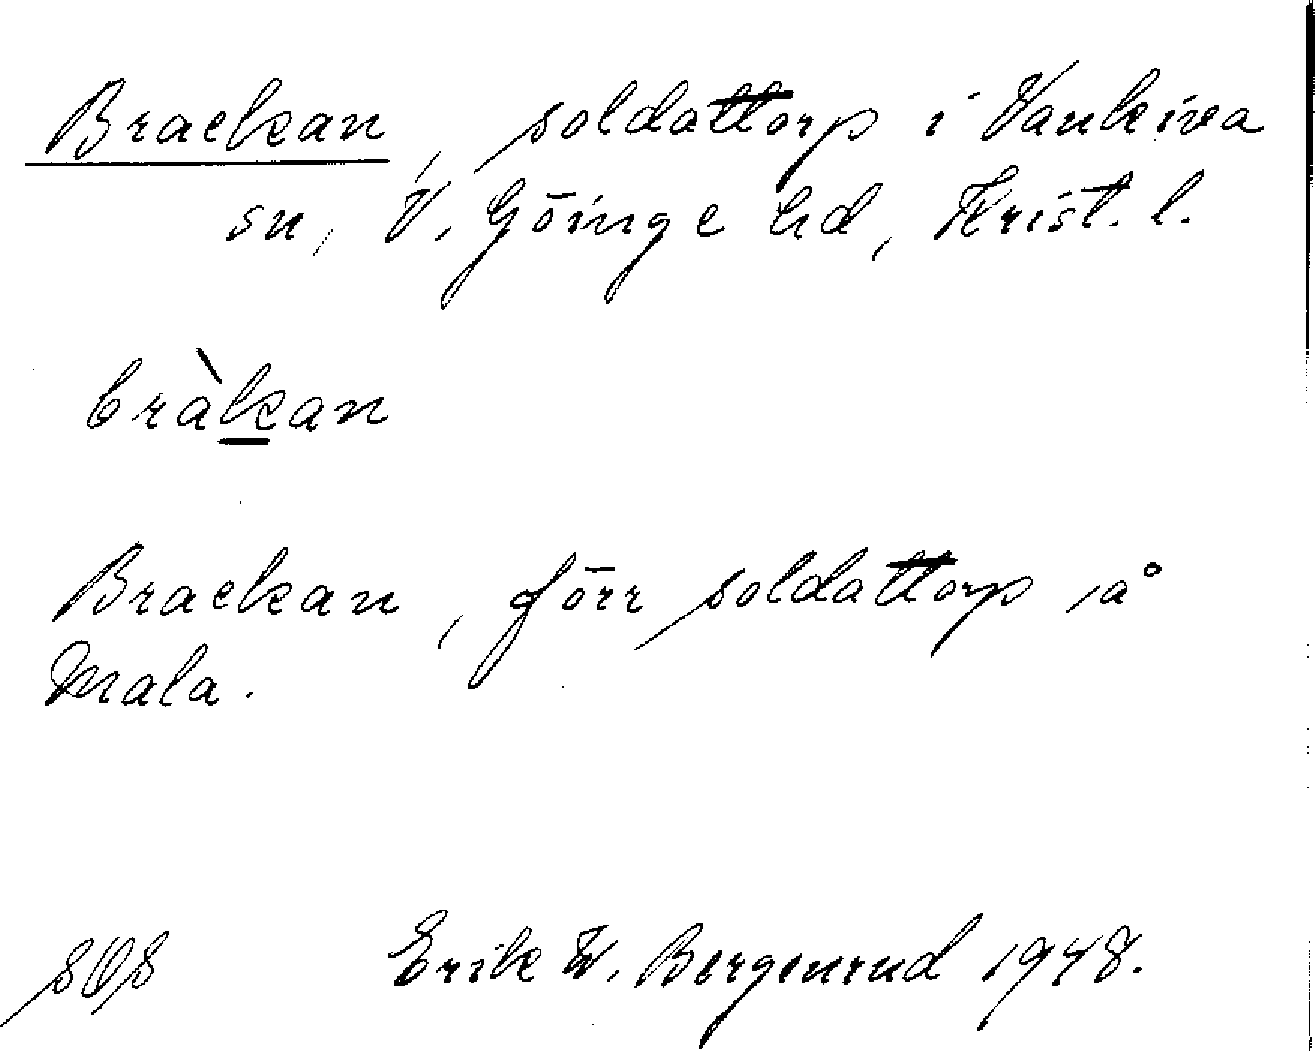 Brackan, soldattorp i Vankiva
sn, V. Göinge hd, Krist. l.
bràkan
Brackan, förr soldattorp å
Mala.
Erik W. Bergenrud 1948.